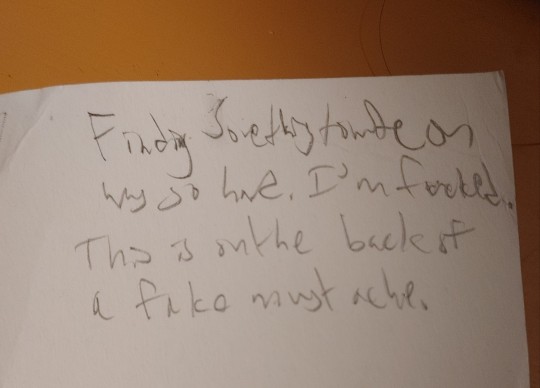 Finding Something to write on
was so hard. I'm fucked.
This is on the back of
a fake mustache.